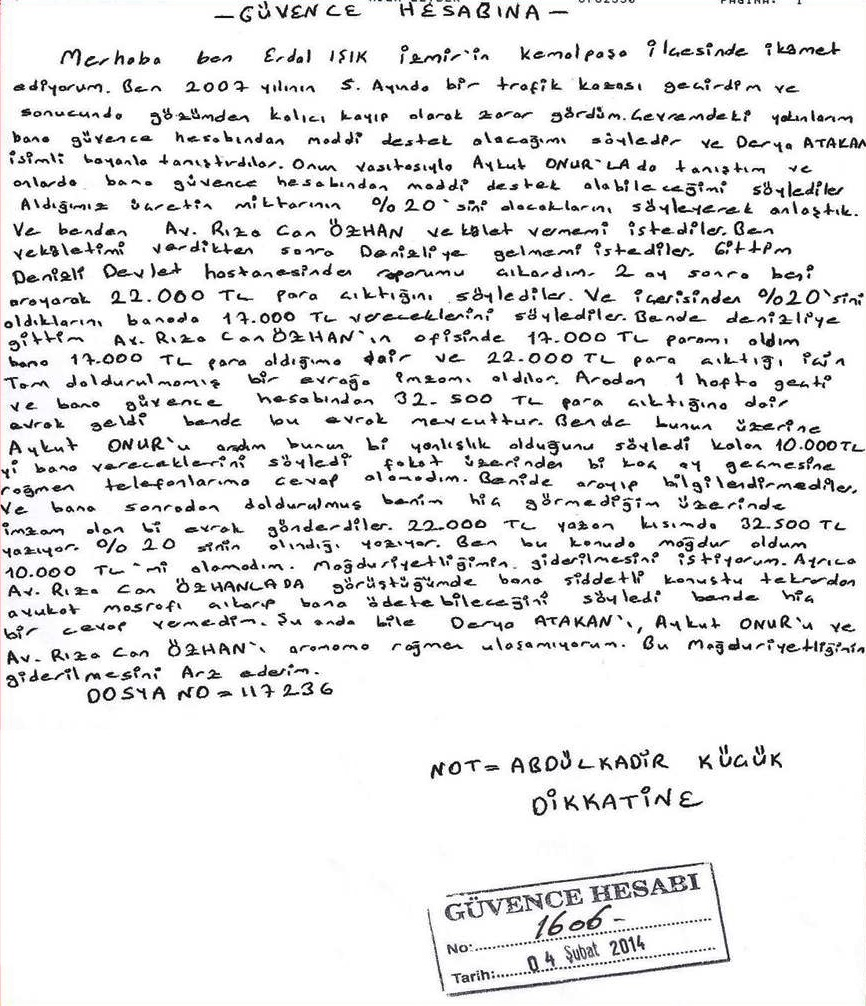 -GÜVENCE HESABINA-
Merhaba ben Erdal IŞIK İzmir'in Kemalpaşa ilçesinde ikamet
ediyorum. Ben 2007 yılının 5. Ayında bir trafik kazası geçirdim ve
sonucunda gözümden kalıcı kayıp olarak zarar gördüm. Çevremdeki yakınlarım
bana güvence hesabından maddi destek alacağımı söyledir ve Derya ATAKAN
isimli bayanla tanıştırdılar. Onun vasıtasıyla Aykut ONUR'LA da tanıştım ve
onlarda bana güvence hesabından maddi destek alabileceğimi söylediler
Aldığımız ücretin miktarının %20'sini alacaklarını söyleyerek anlaştık.
Ve benden Av. Rıza Can ÖZHAN vekalet vermemi istediler. Ben
vekaletimi verdikten sonra Denizliye gelmemi istediler. Gittim
Denizli Devlet hastanesinden raporumu çıkardım. 2 ay sonra beni
arayarak 22.000 TL para çıktığını söylediler. Ve içerisinden %20'sini
aldıklarını banada 17.000 TL vereceklerini söylediler. Bende denizliye
gittim Av. Rıza Can ÖZHAN'ın ofisinde 17.000 TL paramı aldım
bana 17.000 TL para aldığıma dair ve 22.000 TL para çıktığı için
Tam doldurulmamış bir evrağa imzamı aldılar. Aradan 1 hafta geçti
ve bana güvence hesabından 32.500 TL para çıktığına dair
evrak geldi bende bu evrak mevcuttur. Bende bunun üzerine
Aykut ONUR'u aradım bunun bi yanlışlık olduğunu söyledi kalan 10.000TL
yi bana vereceklerini söyledi fakat üzerinden bi kaç ay geçmesine
rağmen telefonlarıma cevap alamadım. Benide arayıp bilgilendirmediler.
Ve bana sonradan doldurulmuş benim hiç görmediğim üzerinde
imzam olan bi evrak gönderdiler. 22.000 TL yazan kısımda 32.500 TL
yazıyor. %20 sinin alındığı yazıyor. Ben bu konuda mağdur oldum
10.000 TL'mi alamadım. Mağduriyetliğimin giderilmesini istiyorum. Ayrıca
Av. Rıza Can ÖZHANLADA görüştüğümde bana şiddetli konuştu tekrardan
avukat masrafı çıkarıp bana ödetebileceğini söyledi bende hiç
bir cevap vermedim. Şu anda bile Derya ATAKAN'ı, Aykut ONUR'u ve
Av. Rıza Can ÖZHAN'ı aramama rağmen ulaşamıyorum. Bu Mağduriyetliğinin
giderilmesini Arz ederim.
DOSYA NO=117236
NOT= ABDÜLKADİR KÜÇÜK
DİKKATİNE
GÜVENCE HESABI
No:.....1606-
Tarih:.....04 Şubat 2014